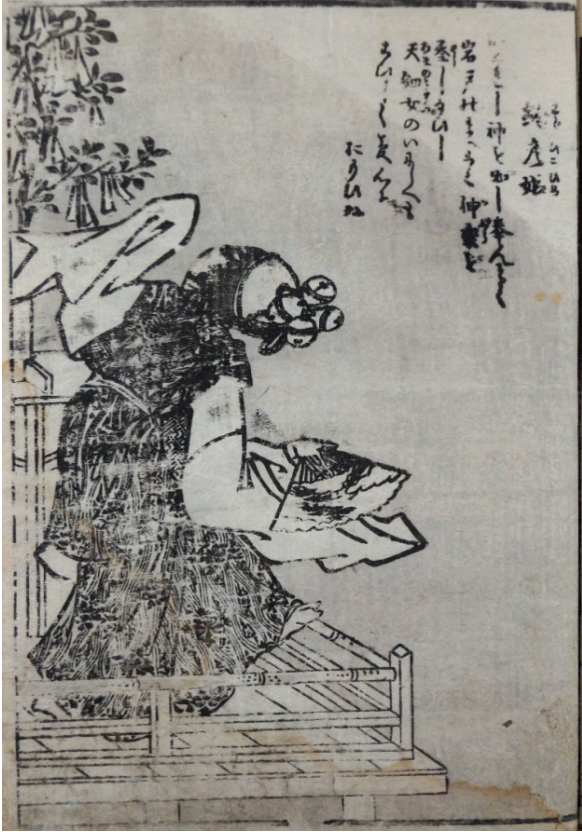 鈴彦姫
かくれし神を出し奉んとて
岩戸のまへにて神楽を
奏し給ひし
天鈿女のいにしへも
こひしく夢心に
おもひぬ